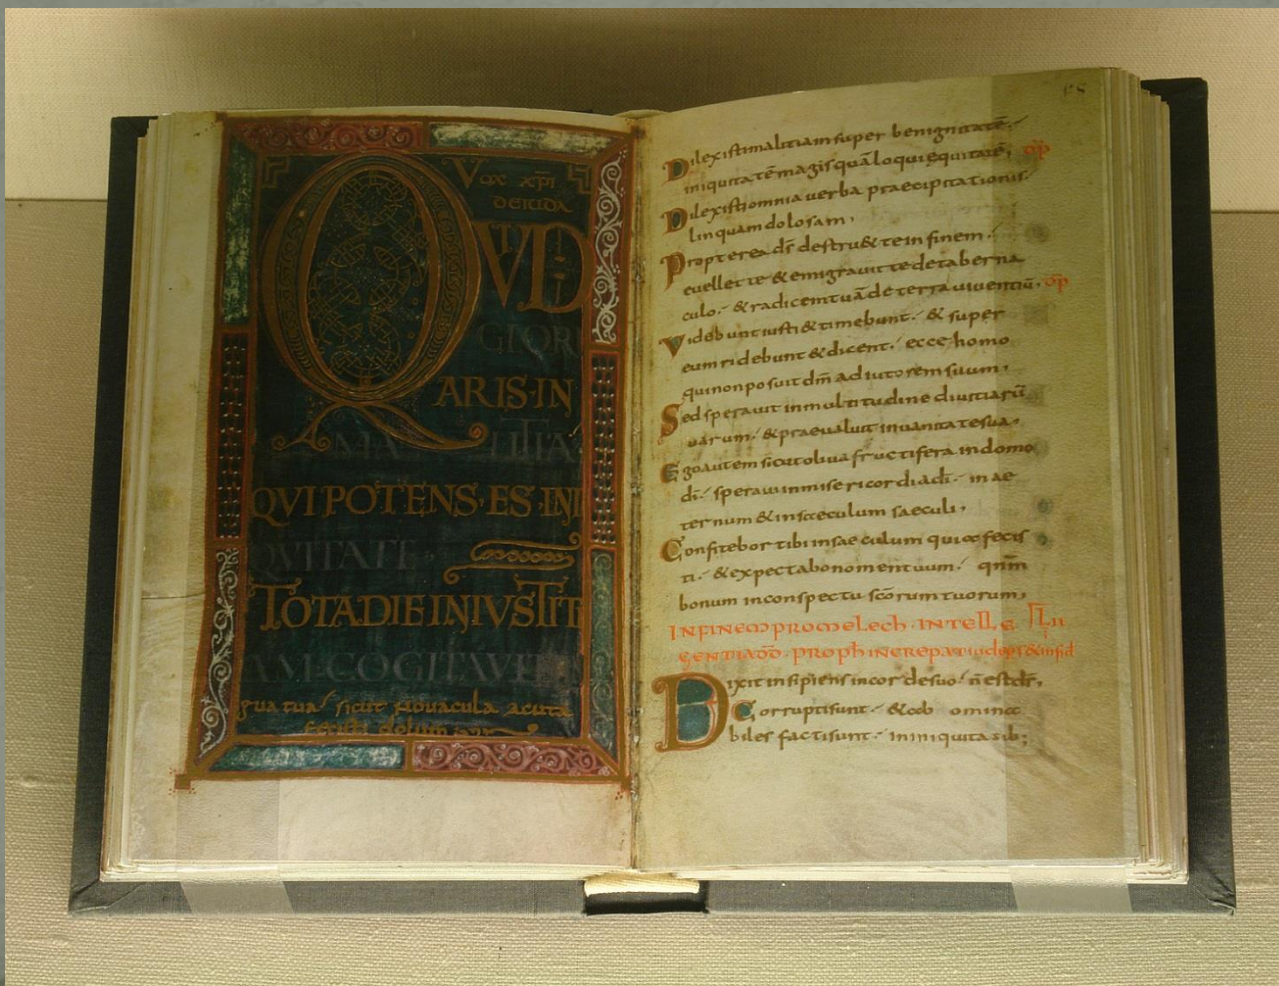 Vox xp̄i
de iuda
QVID
GLORI
ARIS·IN
MA LITIA
QVI POTENS·ES·INI
QVITATE
TOTA DIE INIVSTIT
AM·COGITAVIT
gua tua sicut novacula acuta
fecisti dolum
Dilexisti malitiam super benignitatē
iniquitatē magis quā loqui equitatē;
Dilexisti omnia verba praecipitationis
linguam dolosam.
Propterea ds̄ destru& te in finem.
evellet te & emigravit te de taberna
culo. & radicem tuā de terra viventiū.
Videbunt iusti & timebunt. & super
eum ridebunt & dicent. ecce homo
qui non posuit dm̄ adiutorem suum.
Sed speravit in multitudine divitiarū
suarum. & praevaluit in vanitate sua.
Ego autem sicut oliva fructifera in domo
dī. speravi in misericordia dī. in ae
ternum & in saeculum saeculi.
Confitebor tibi in saeculum quia fecis
ti. & expectabo nomen tuum. qnm̄
bonum in conspectu scōrum tuorum.
IN FINEM PRO MELECH. INTELLE LII
GENTIA DD̄. PROPH INCREPAT
Dixit insipiens in corde suo. n̄ est ds̄.
Corrupti sunt. & ab omina
biles facti sunt. in iniquitatib;